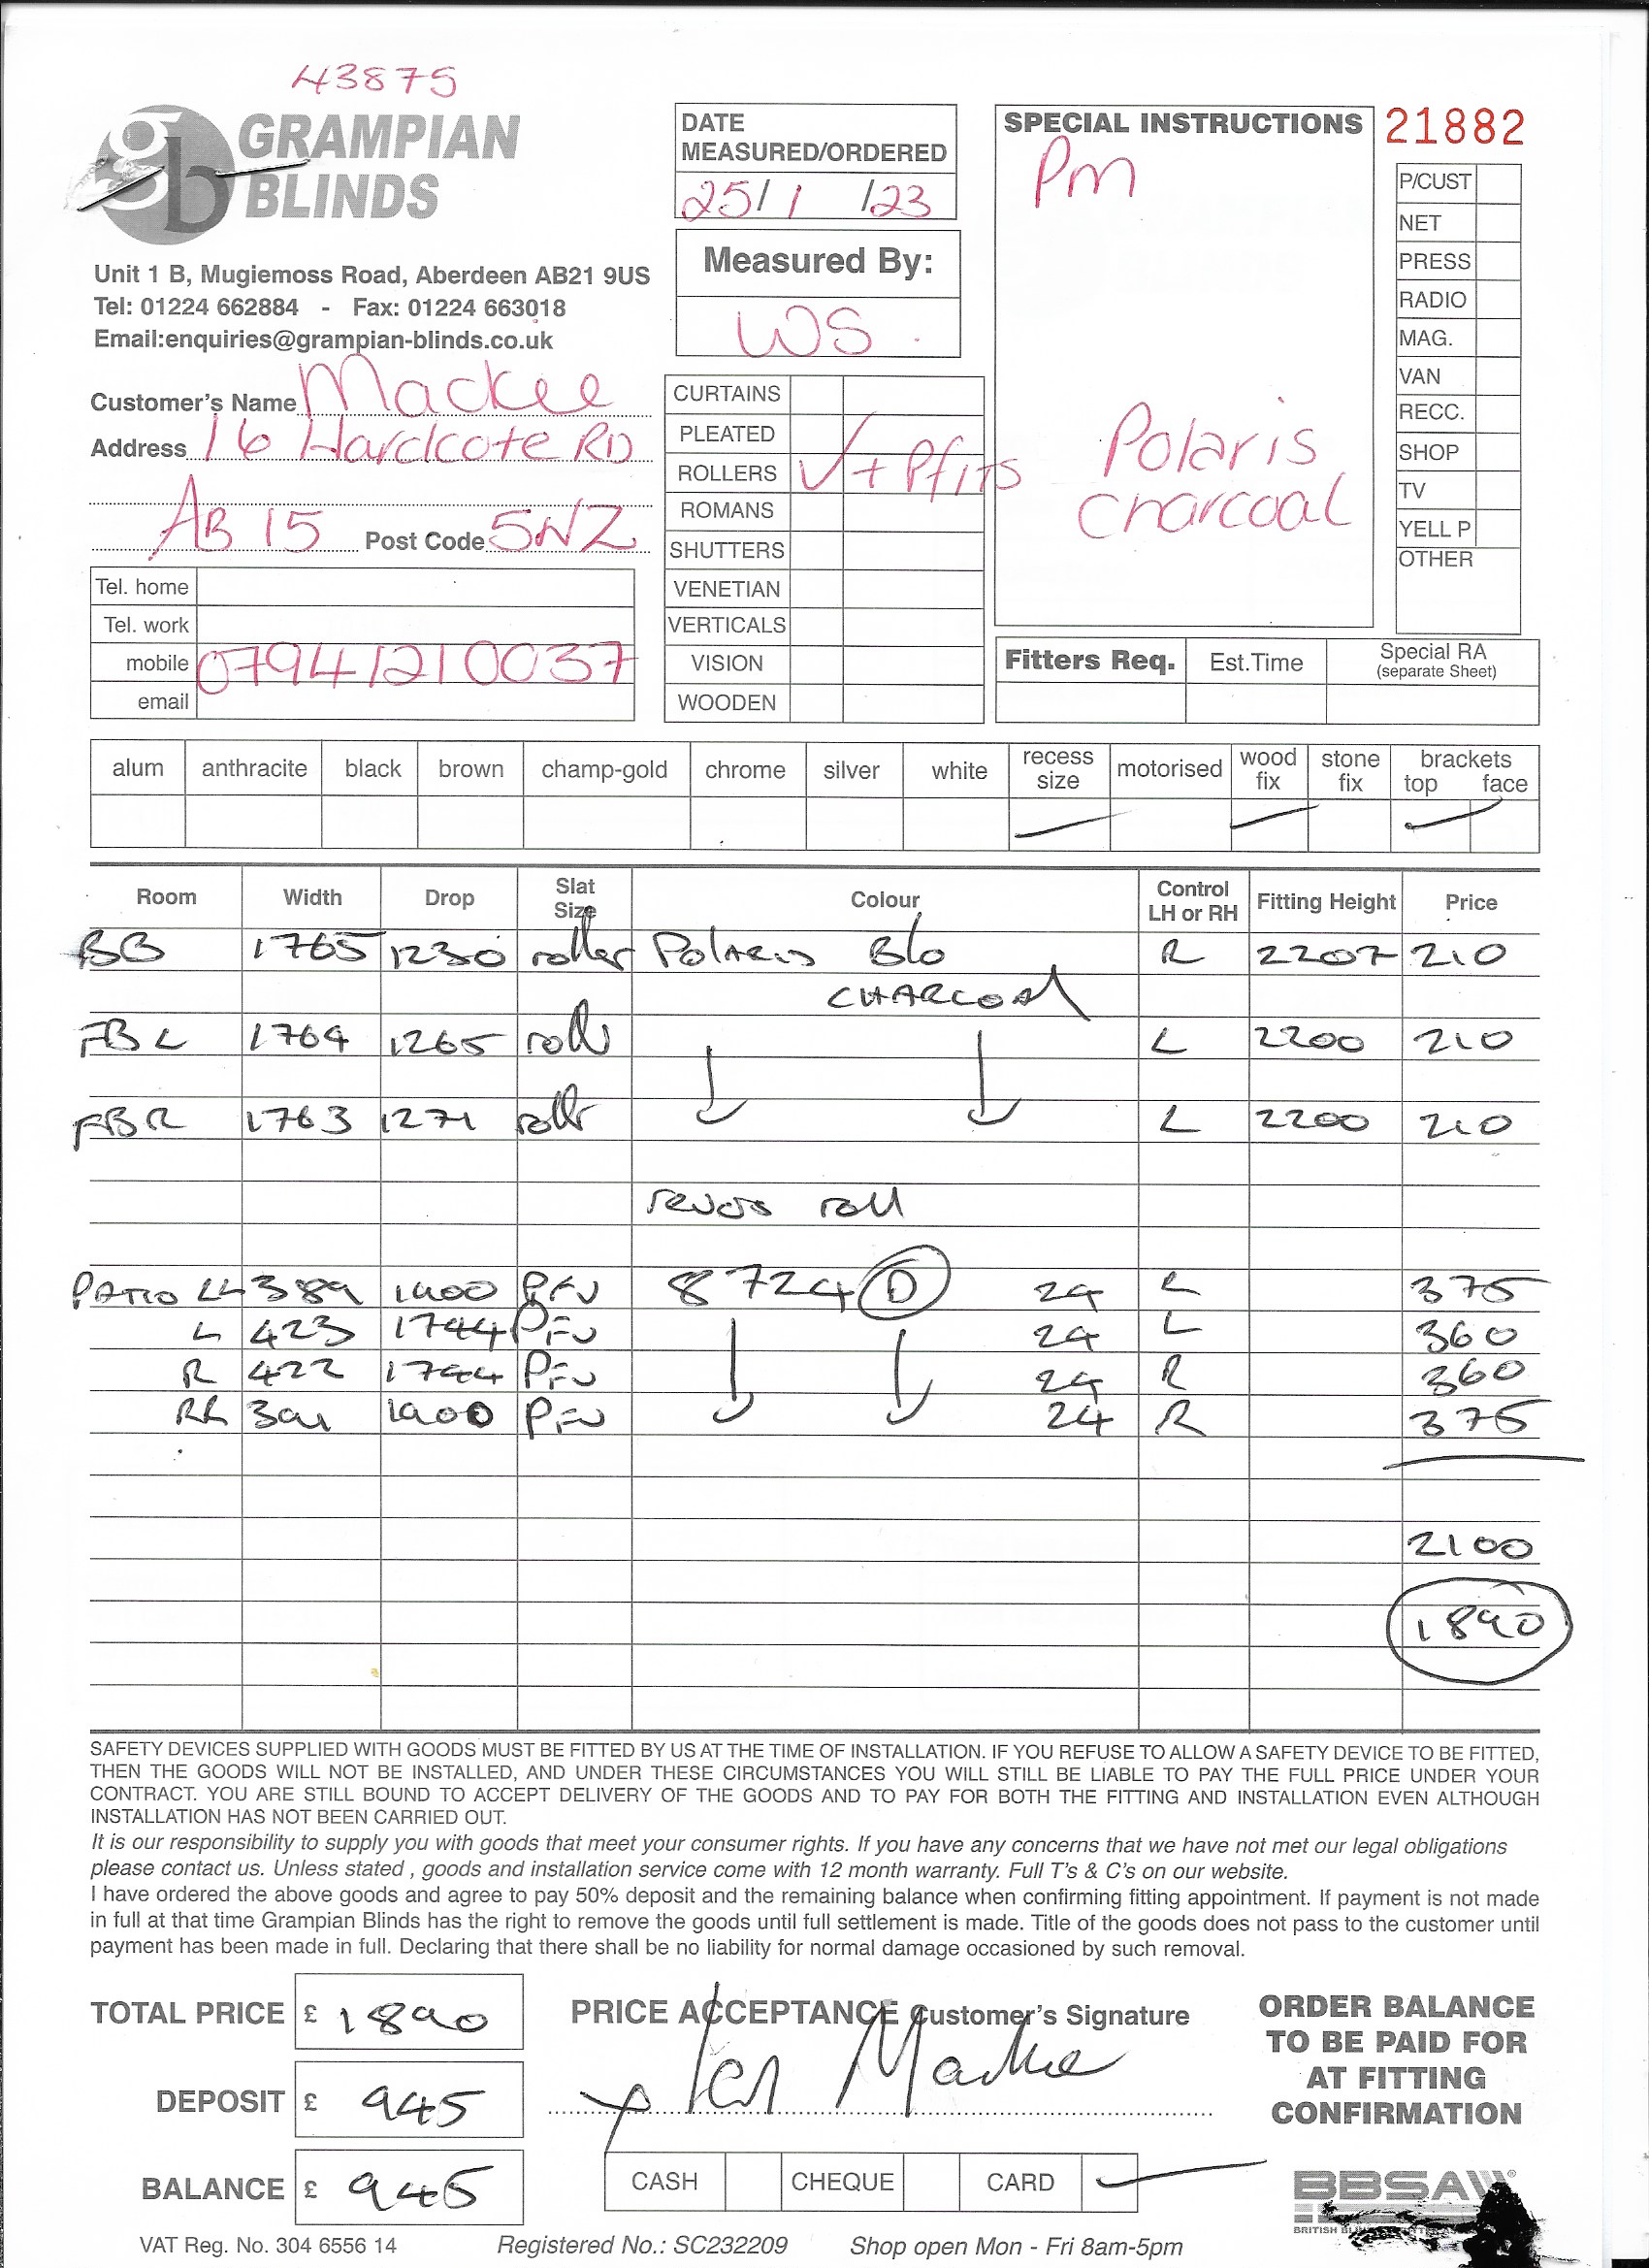 43875
GRAMPIAN
BLINDS
Unit 1 B, Mugiemoss Road, Aberdeen AB21 9US
Tel: 01224 662884 - Fax: 01224 663018
Email:enquiries@grampian-blinds.co.uk
Customer's Name Mackie
Address 16 Hardcote RD
AB 15 Post Code 5NZ
Tel. home
Tel. work
mobile 07941210037
email
DATE
MEASURED/ORDERED
25/1/23
Measured By:
WS
CURTAINS
PLEATED
ROLLERS ✓ + Pfits
ROMANS
SHUTTERS
VENETIAN
VERTICALS
VISION
WOODEN
SPECIAL INSTRUCTIONS
Pm
Polaris
charcoal
21882
P/CUST
NET
PRESS
RADIO
MAG.
VAN
RECC.
SHOP
TV
YELL P
OTHER
Fitters Req. Est.Time Special RA
(separate Sheet)
alum anthracite black brown champ-gold chrome silver white recess size motorised wood fix stone fix brackets top face
Room Width Drop Slat Size Colour Control LH or RH Fitting Height Price
BB 1765 1230 roller Polaris B/o R 2207 210
CHARCOAL
FB L 1764 1265 L 2200 210
FB R 1763 1271 L 2200 210
roll
PATIO LL 389 1900 8724 D 24 L 375
L 423 1744 24 L 360
R 422 1744 24 R 360
RR 391 1900 24 R 375
2100
1890
SAFETY DEVICES SUPPLIED WITH GOODS MUST BE FITTED BY US AT THE TIME OF INSTALLATION. IF YOU REFUSE TO ALLOW A SAFETY DEVICE TO BE FITTED,
THEN THE GOODS WILL NOT BE INSTALLED, AND UNDER THESE CIRCUMSTANCES YOU WILL STILL BE LIABLE TO PAY THE FULL PRICE UNDER YOUR
CONTRACT. YOU ARE STILL BOUND TO ACCEPT DELIVERY OF THE GOODS AND TO PAY FOR BOTH THE FITTING AND INSTALLATION EVEN ALTHOUGH
INSTALLATION HAS NOT BEEN CARRIED OUT.
It is our responsibility to supply you with goods that meet your consumer rights. If you have any concerns that we have not met our legal obligations
please contact us. Unless stated , goods and installation service come with 12 month warranty. Full T's & C's on our website.
I have ordered the above goods and agree to pay 50% deposit and the remaining balance when confirming fitting appointment. If payment is not made
in full at that time Grampian Blinds has the right to remove the goods until full settlement is made. Title of the goods does not pass to the customer until
payment has been made in full. Declaring that there shall be no liability for normal damage occasioned by such removal.
TOTAL PRICE £ 1890
DEPOSIT £ 945
BALANCE £ 945
PRICE ACCEPTANCE Customer's Signature
Mackie
CASH CHEQUE CARD ✓
ORDER BALANCE
TO BE PAID FOR
AT FITTING
CONFIRMATION
BBSA
BRITISH
VAT Reg. No. 304 6556 14 Registered No.: SC232209 Shop open Mon - Fri 8am-5pm